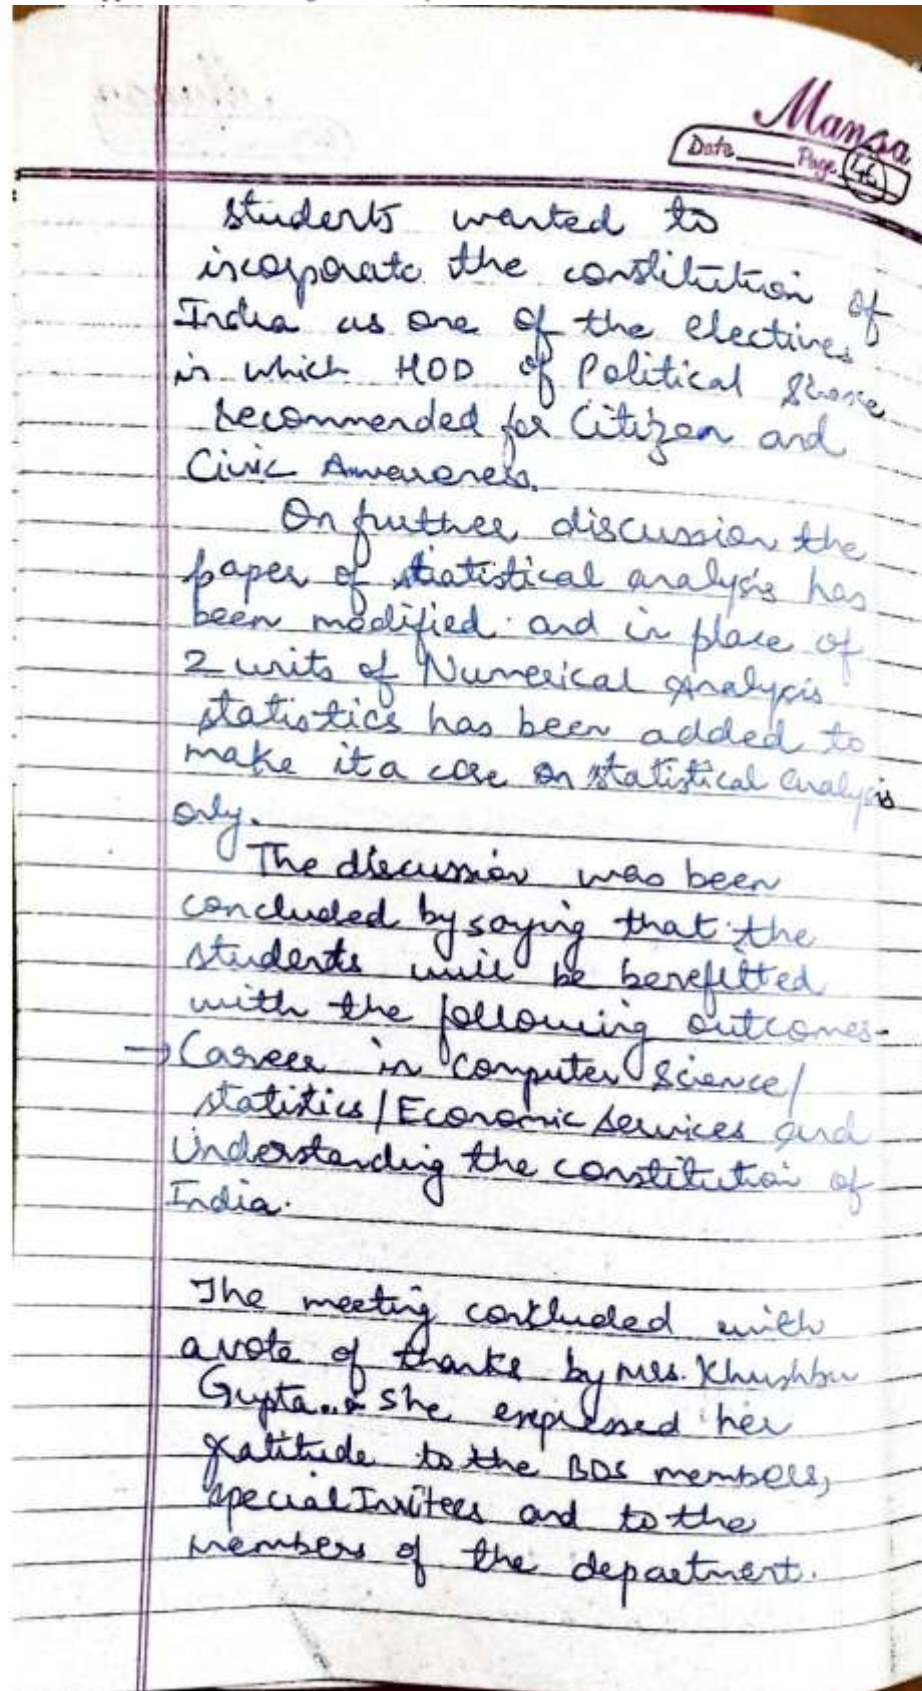 Mansa
Date____ Page 46
students wanted to
incorporate the constitution of
India as one of the electives
in which HOD of Political Science
recommended for Citizen and
Civic Awareness.
On further discussion the
paper of statistical analysis has
been modified and in place of
2 units of Numerical Analysis
statistics has been added to
make it a core on statistical analysis
only.
The discussion was been
concluded by saying that the
students will be benefitted
with the following outcomes-
→ Career in Computer Science/
statistics/Economic services and
Understanding the constitution of
India.
The meeting concluded with
a vote of thanks by Mrs. Khushbu
Gupta.. She expressed her
gratitude to the BOS members,
special Invitees and to the
members of the department.